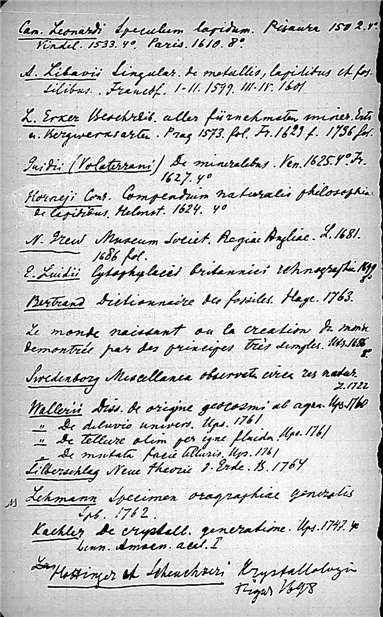 Cam. Leonardi Speculum lapidum. Pisaura 1502. 4°
Vindel. 1533. 4°, Paris. 1610. 8°
A. Libavii Singular. de metallis, lapidibus et fos-
silibus. Francof. I-II. 1599. III-IV. 1601
L. Erker Beschreib. aller fürnehmsten miner. Erts
u. Bergwerksarten. Prag 1573. fol. Fr. 1629 f. 1736 fol.
Guidii (Volaterrani) De mineralibus. Ven. 1625. 4° Fr.
1627. 4°
Horneji Conr. Compendium naturalis philosophiae
de lapidibus. Helmst. 1624. 4°
N. Grew Museum Societ. Regiae Angliae. L. 1681.
1686 fol.
E. Luidii Lytophylacii britannici ichnographia 1699
Bertrand Dictionnaire des fossiles. Haye. 1763.
Le monde naissant ou la creation du monde
demontrée par des principes très simples. Utr. 1686
Swedenborg Miscellanea observata circa res natur.
L. 1722
Wallerii Diss. de origine geocosmi ab aqua. Ups. 1760
" De diluvio univers. Ups. 1761
" De tellure olim per igne fluida. Ups. 1761
" De mutata facie telluris. Ups. 1761
Silberschlag Neue Theorie d. Erde. B. 1764
Lehmann Specimen orographiae generalis
Spb. 1762.
Kaehler De crystall. generatione. Ups. 1747. 4°
Linn. Amoen. acad. I
Hottinger et Scheuchzeri Krystallologia
Tiguri 1698